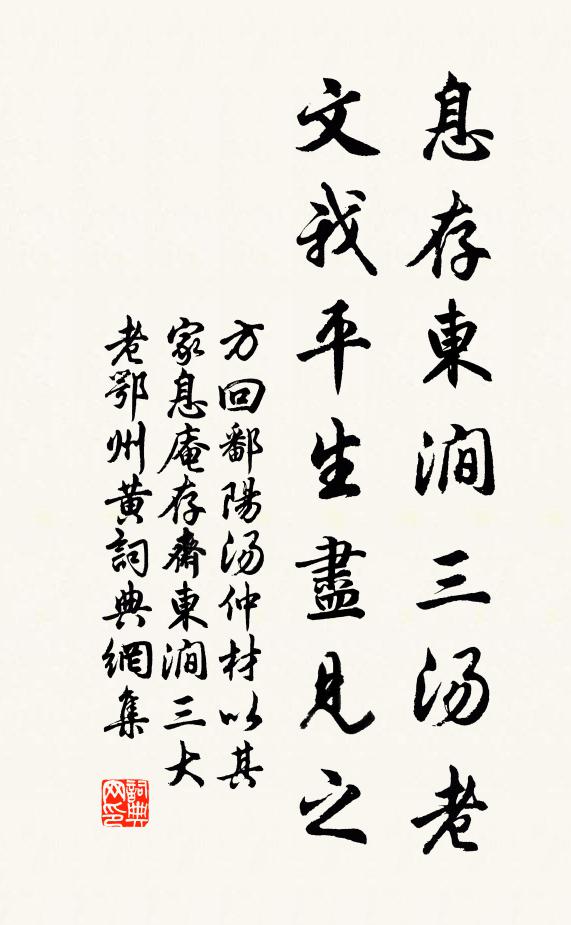 息存東澗三汤老
文我平生盡見之
方回鄱陽汤仲材以其
家息庵存齋東澗三大
老鄂州黄詞典網集
詞典
网印